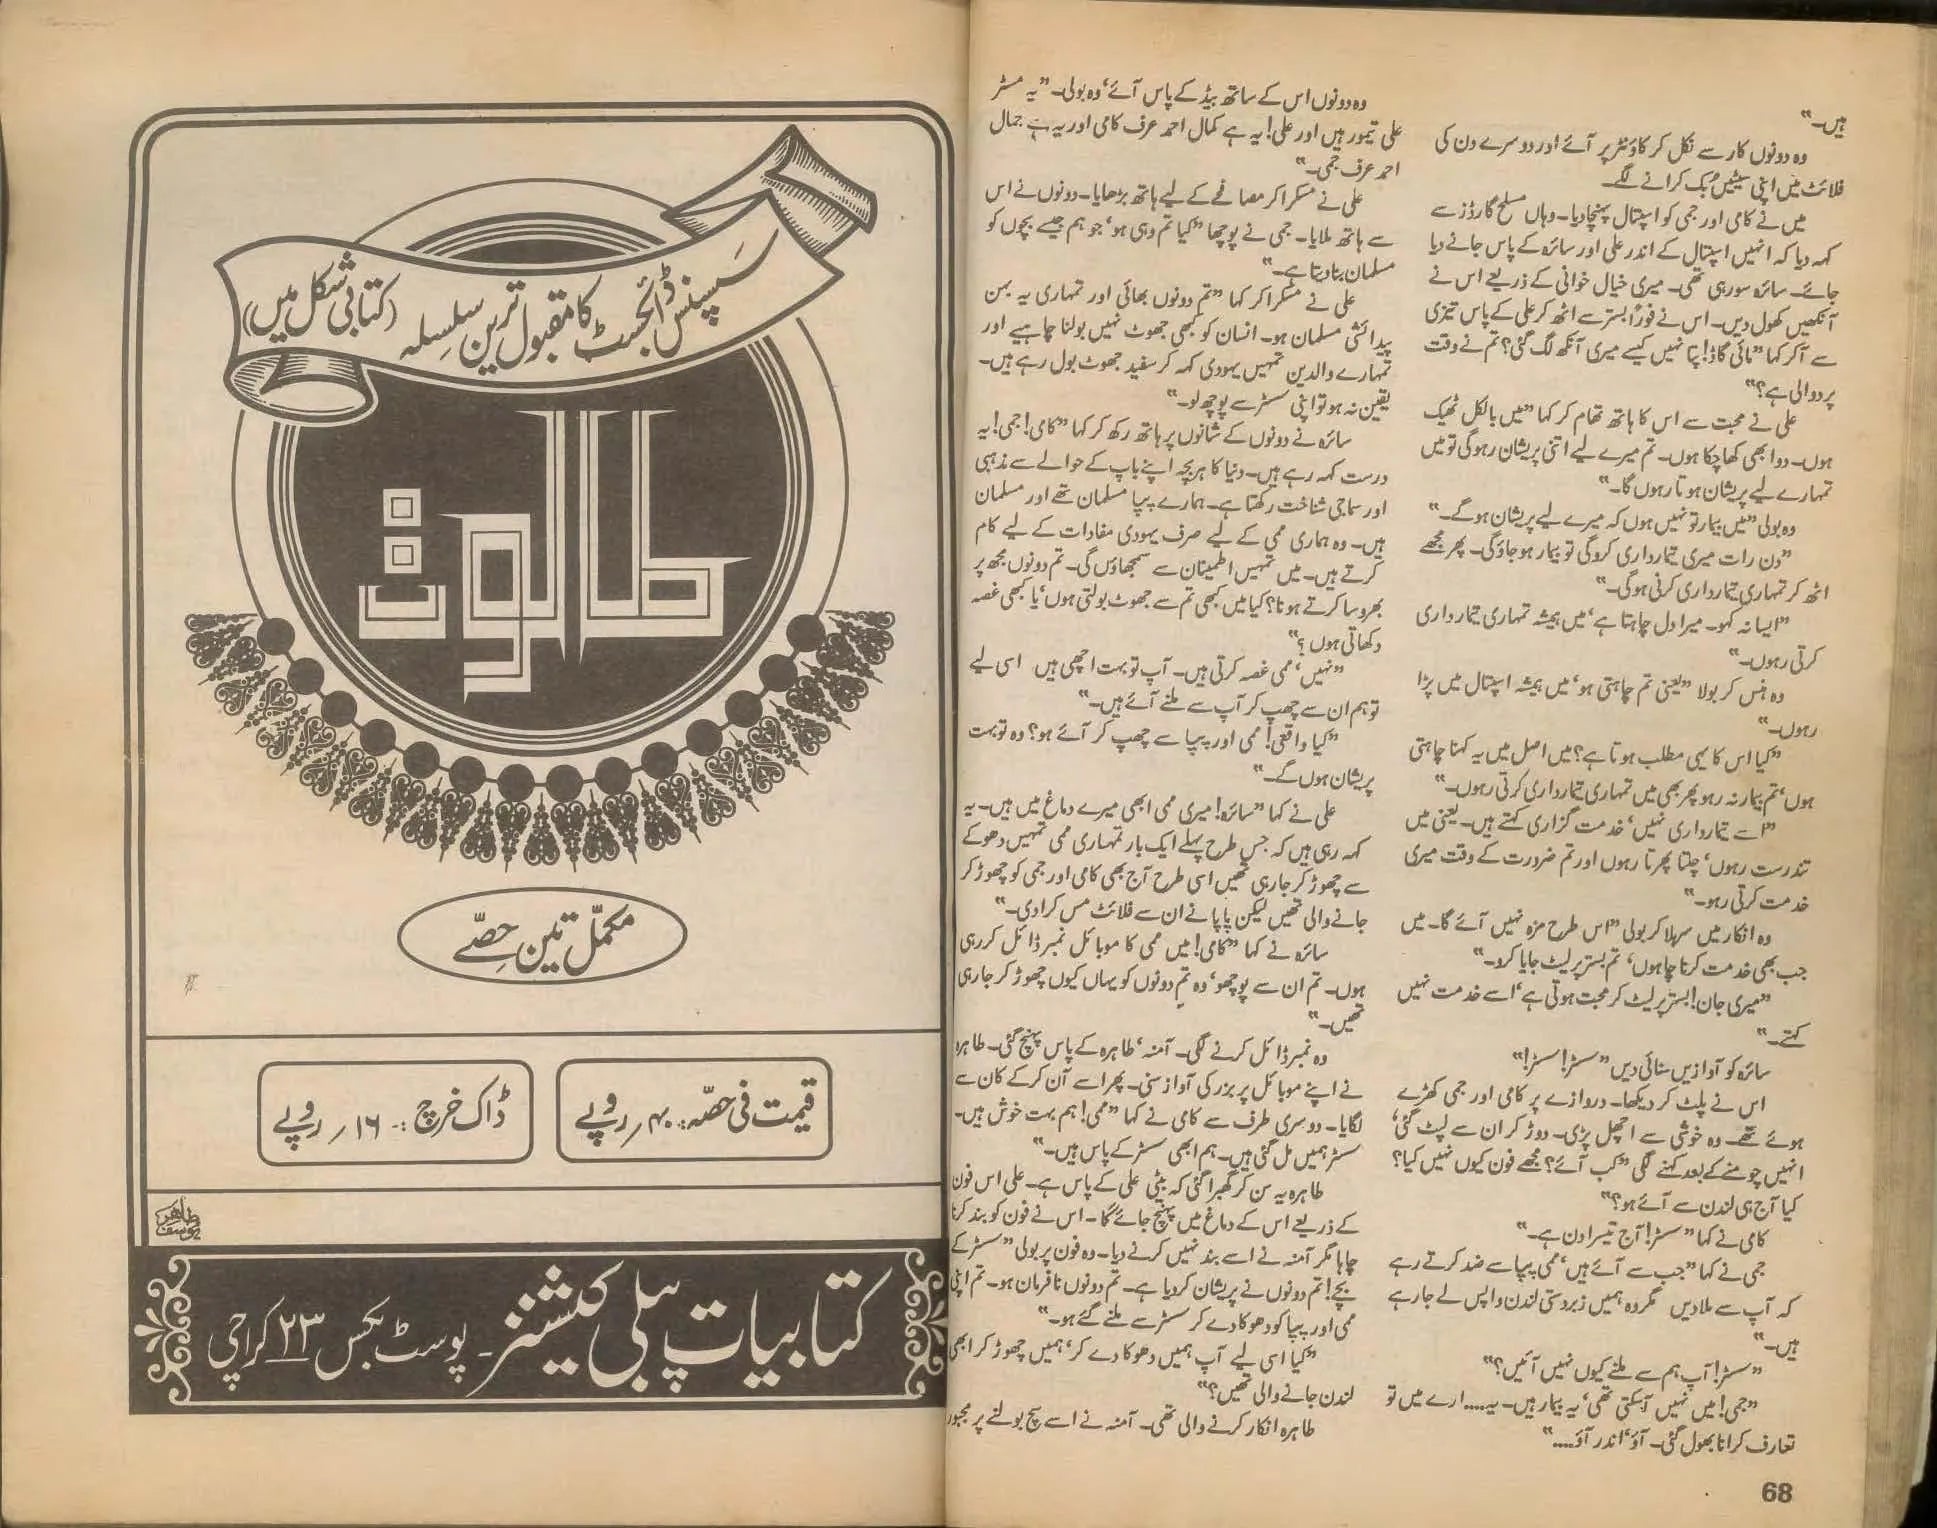 ہیں۔"
وہ دونوں کار سے نکل کر کاؤنٹر پر آئے اور دوسرے دن کی
فلائٹ میں اپنی سیٹیں بُک کرانے لگے۔
میں نے کامی اور جمی کو اسپتال پہنچا دیا۔ وہاں مسلح گارڈز سے
کہہ دیا کہ انہیں اسپتال کے اندر علی اور سائرہ کے پاس جانے دیا
جائے۔ سائرہ سو رہی تھی۔ میری خیال خوانی کے ذریعے اس نے
آنکھیں کھول دیں۔ اس نے فوراً بستر سے اٹھ کر علی کے پاس تیزی
سے آکر کہا "مائی گاڈ! پتا نہیں کیسے میری آنکھ لگ گئی؟ تم نے وقت
پر دوا لی ہے؟"
علی نے محبت سے اس کا ہاتھ تھام کر کہا "میں بالکل ٹھیک
ہوں۔ دوا بھی کھا چکا ہوں۔ تم میرے لیے اتنی پریشان رہو گی تو میں
تمہارے لیے پریشان ہوتا رہوں گا۔"
وہ بولی "میں بیمار تو نہیں ہوں کہ میرے لیے پریشان ہو گے۔"
"دن رات میری تیمارداری کرو گی تو بیمار ہو جاؤ گی۔ پھر مجھے
اٹھ کر تمہاری تیمارداری کرنی ہوگی۔"
"ایسا نہ کہو۔ میرا دل چاہتا ہے' میں ہمیشہ تمہاری تیمارداری
کرتی رہوں۔"
وہ ہنس کر بولا "یعنی تم چاہتی ہو' میں ہمیشہ اسپتال میں پڑا
رہوں۔"
"کیا اس کا یہی مطلب ہوتا ہے؟ میں اصل میں یہ کہنا چاہتی
ہوں' تم بیمار نہ رہو پھر بھی میں تمہاری تیمارداری کرتی رہوں۔"
"اسے تیمارداری نہیں' خدمت گزاری کہتے ہیں۔ یعنی میں
تندرست رہوں' چلتا پھرتا رہوں اور تم ضرورت کے وقت میری
خدمت کرتی رہو۔"
وہ انکار میں سر ہلا کر بولی "اس طرح مزہ نہیں آئے گا۔ میں
جب بھی خدمت کرنا چاہوں' تم بستر پر لیٹ جایا کرو۔"
"میری جان! بستر پر لیٹ کر محبت ہوتی ہے' اسے خدمت نہیں
کہتے۔"
سائرہ کو آوازیں سنائی دیں "سسٹر! سسٹر!"
اس نے پلٹ کر دیکھا۔ دروازے پر کامی اور جمی کھڑے
ہوئے تھے۔ وہ خوشی سے اچھل پڑی۔ دوڑ کر ان سے لپٹ گئی'
انہیں چومنے کے بعد کہنے لگی "کب آئے؟ مجھے فون کیوں نہیں کیا؟
کیا آج ہی لندن سے آئے ہو؟"
کامی نے کہا "سسٹر! آج تیسرا دن ہے۔"
جمی نے کہا "جب سے آئے ہیں' ممی پپا سے ضد کرتے رہے
کہ آپ سے ملا دیں مگر وہ ہمیں زبردستی لندن واپس لے جا رہے
ہیں۔"
"سسٹر! آپ ہم سے ملنے کیوں نہیں آئیں؟"
"جمی! میں نہیں آسکتی تھی' یہ بیمار ہیں۔ یہ.... ارے میں تو
تعارف کرانا بھول گئی۔ آؤ' اندر آؤ....."
68
وہ دونوں اس کے ساتھ بیڈ کے پاس آئے' وہ بولی۔ "یہ مسٹر
علی تیمور ہیں اور علی! یہ ہے کمال احمد عرف کامی اور یہ ہے جمال
احمد عرف جمی۔"
علی نے مسکرا کر مصافحے کے لیے ہاتھ بڑھایا۔ دونوں نے اس
سے ہاتھ ملایا۔ جمی نے پوچھا "کیا تم وہی ہو' جو ہم جیسے بچوں کو
مسلمان بنا دیتا ہے۔"
علی نے مسکرا کر کہا "تم دونوں بھائی اور تمہاری یہ بہن
پیدائشی مسلمان ہو۔ انسان کو کبھی جھوٹ نہیں بولنا چاہیے اور
تمہارے والدین تمہیں یہودی کہہ کر سفید جھوٹ بول رہے ہیں۔
یقین نہ ہو تو اپنی سسٹر سے پوچھ لو۔"
سائرہ نے دونوں کے شانوں پر ہاتھ رکھ کر کہا "کامی! جمی! یہ
درست کہہ رہے ہیں۔ دنیا کا ہر بچہ اپنے باپ کے حوالے سے مذہبی
اور سماجی شناخت رکھتا ہے۔ ہمارے پپا مسلمان تھے اور مسلمان
ہیں۔ وہ ہماری ممی کے لیے صرف یہودی مفادات کے لیے کام
کرتے ہیں۔ میں تمہیں اطمینان سے سمجھاؤں گی۔ تم دونوں مجھ پر
بھروسا کرتے ہو نا؟ کیا میں کبھی تم سے جھوٹ بولتی ہوں' یا کبھی غصہ
دکھاتی ہوں؟"
"نہیں' ممی غصہ کرتی ہیں۔ آپ تو بہت اچھی ہیں اسی لیے
تو ہم ان سے چھپ کر آپ سے ملنے آئے ہیں۔"
"کیا واقعی! ممی اور پپا سے چھپ کر آئے ہو؟ وہ تو بہت
پریشان ہوں گے۔"
علی نے کہا "سائرہ! میری ممی ابھی میرے دماغ میں ہیں۔ یہ
کہہ رہی ہیں کہ جس طرح پہلے ایک بار تمہاری ممی تمہیں دھوکے
سے چھوڑ کر جا رہی تھیں اسی طرح آج بھی کامی اور جمی کو چھوڑ کر
جانے والی تھیں لیکن پاپا نے ان سے فلائٹ مس کرا دی۔"
سائرہ نے کہا "کامی! میں ممی کا موبائل نمبر ڈائل کر رہی
ہوں۔ تم ان سے پوچھو' وہ تم دونوں کو یہاں کیوں چھوڑ کر جا رہی
تھیں۔"
وہ نمبر ڈائل کرنے لگی۔ آمنہ' طاہرہ کے پاس پہنچ گئی۔ طاہرہ
نے اپنے موبائل پر بزر کی آواز سنی۔ پھر اسے آن کر کے کان سے
لگایا۔ دوسری طرف سے کامی نے کہا "ممی! ہم بہت خوش ہیں۔
سسٹر ہمیں مل گئی ہیں۔ ہم ابھی سسٹر کے پاس ہیں۔"
طاہرہ یہ سن کر گھبرا گئی کہ بیٹی علی کے پاس ہے۔ علی اس فون
کے ذریعے اس کے دماغ میں پہنچ جائے گا۔ اس نے فون کو بند کرنا
چاہا مگر آمنہ نے اسے بند نہیں کرنے دیا۔ وہ فون پر بولی "سسٹر کے
بچے! تم دونوں نے پریشان کر دیا ہے۔ تم دونوں نافرمان ہو۔ تم اپنی
ممی اور پپا کو دھوکا دے کر سسٹر سے ملنے گئے ہو۔"
"کیا اسی لیے آپ ہمیں دھوکا دے کر' ہمیں چھوڑ کر ابھی
لندن جانے والی تھیں؟"
طاہرہ انکار کرنے والی تھی۔ آمنہ نے اسے سچ بولنے پر مجبور
سسپنس ڈائجسٹ کا مقبول ترین سلسلہ (کتابی شکل میں)
طالوت
مکمل تین حصّے
قیمت فی حصّہ: ۴۰؍ روپے
ڈاک خرچ: ۱۶؍ روپے
طاہر یوسف
کتابیات پبلی کیشنز۔ پوسٹ بکس ۲۳ کراچی